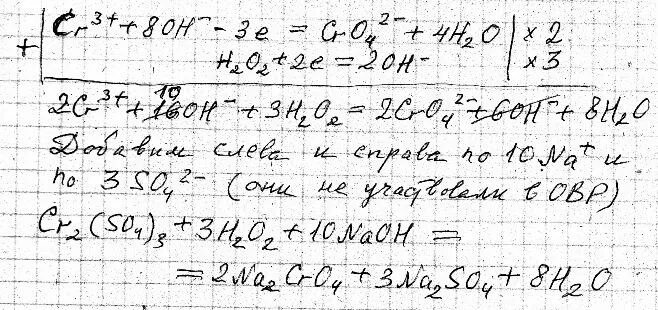 + | Cr³⁺ + 8OH⁻ - 3e = CrO₄²⁻ + 4H₂O | × 2
H₂O₂ + 2e = 2OH⁻ | × 3
2Cr³⁺ + 16OH⁻ 10 + 3H₂O₂ = 2CrO₄²⁻ + 6OH⁻ + 8H₂O
Добавим слева и справа по 10 Na⁺ и
по 3 SO₄²⁻ (они не участвовали в ОВР)
Cr₂(SO₄)₃ + 3H₂O₂ + 10NaOH =
= 2Na₂CrO₄ + 3Na₂SO₄ + 8H₂O